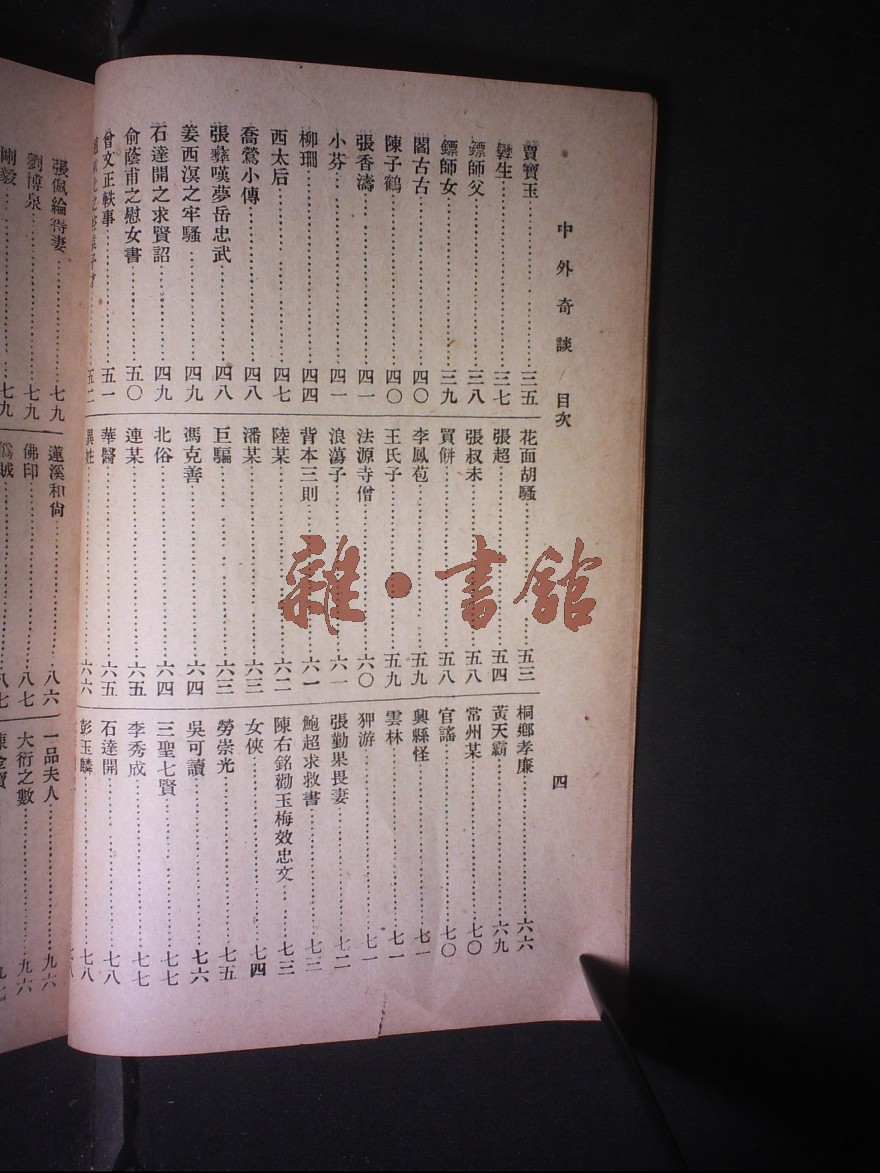 中外奇談 目次 四
賈寶玉…………三五
孌生…………三七
鏢師父…………三八
鏢師女…………三九
閻古古…………四〇
陳子鶴…………四〇
張香濤…………四一
小芬…………四一
柳珊…………四四
西太后…………四七
喬鶯小傳…………四八
張彝嘆夢岳忠武…………四八
姜西溟之牢騷…………四九
石達開之求賢詔…………四九
俞蔭甫之慰女書…………五〇
曾文正軼事…………五一
五二
花面胡騷…………五三
張超…………五四
張叔未…………五八
買餅…………五八
李鳳苞…………五九
王氏子…………五九
法源寺僧…………六〇
浪蕩子…………六一
背本三則…………六一
陸某…………六二
潘某…………六三
巨騙…………六三
馮克善…………六四
北俗…………六四
連某…………六五
華醫…………六五
異姓…………六六
桐鄉孝廉…………六六
黃天霸…………六九
常州某…………七〇
官謠…………七〇
興縣怪…………七一
雲林…………七一
狎游…………七一
張勤果畏妻…………七二
鮑超求救書…………七三
陳右銘勸玉梅效忠文…………七三
女俠…………七四
勞崇光…………七五
吳可讀…………七六
三聖七賢…………七七
李秀成…………七七
石達開…………七八
彭玉麟…………七八
張佩綸得妻…………七九
劉博泉…………七九
剛毅…………七九
蓮溪和尙…………八六
佛印…………八七
八七
一品夫人…………九六
大衍之數…………九六
雜·書館